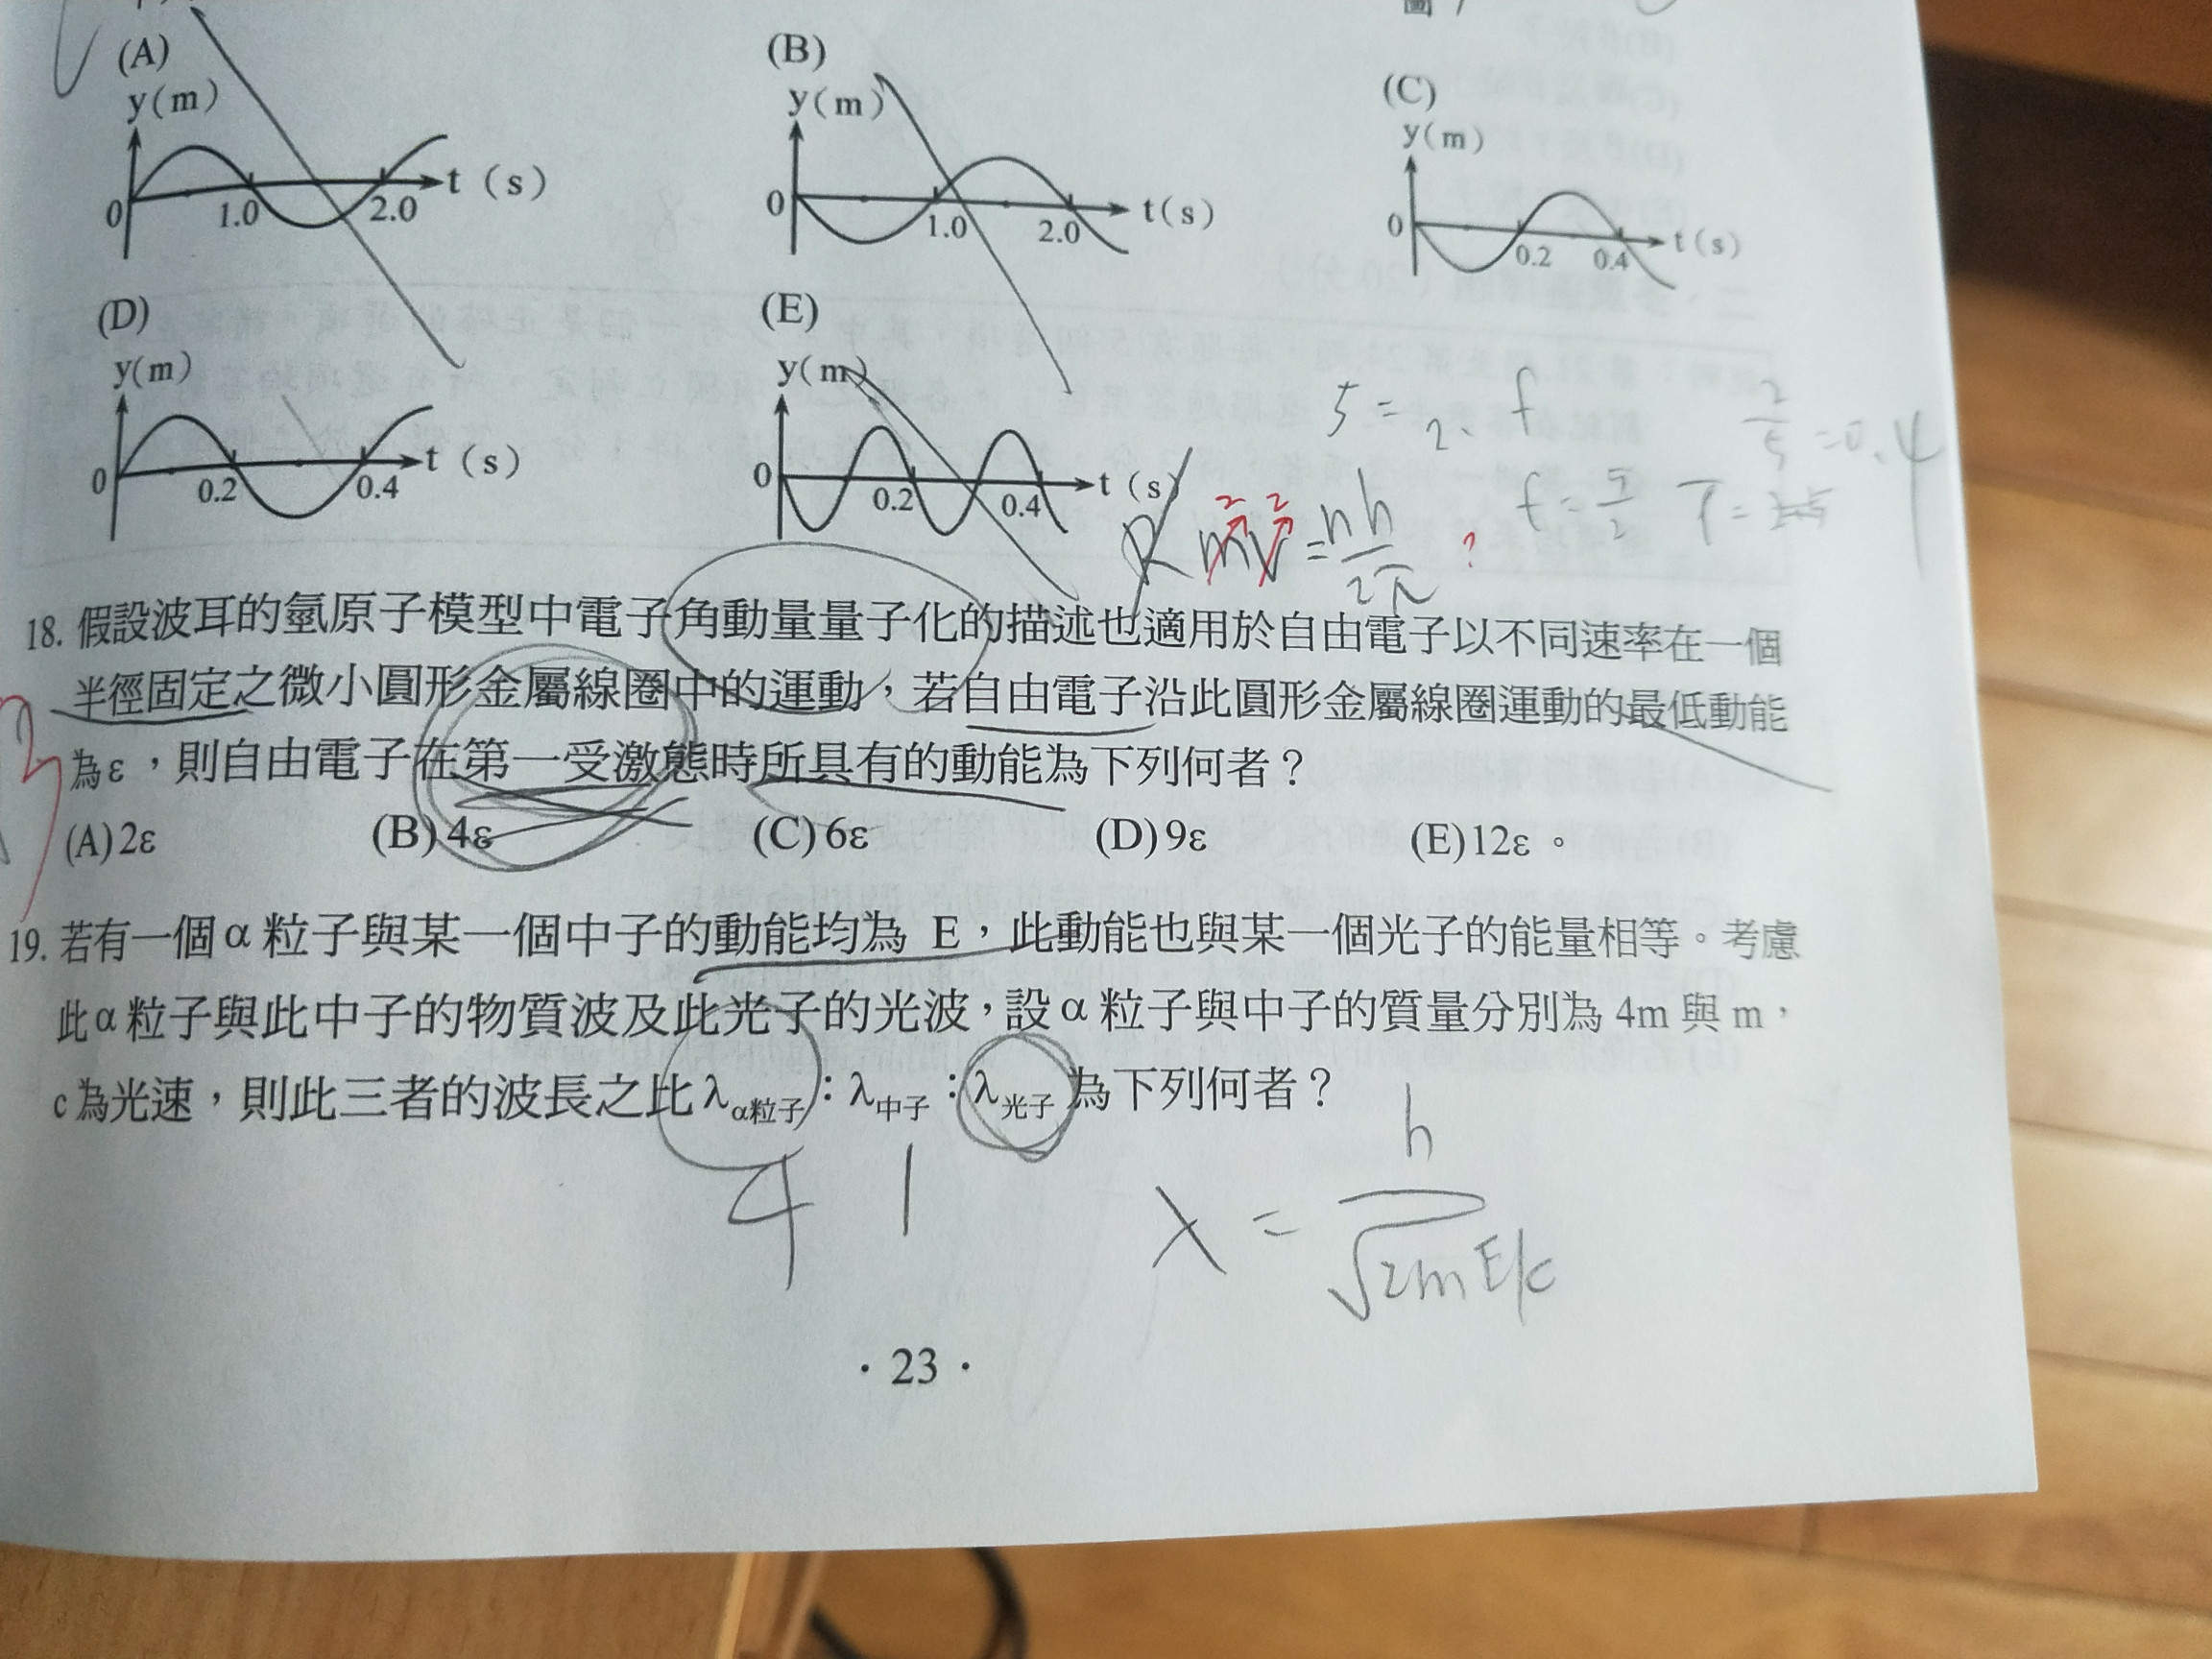 (A)
(B)
(C)
y(m)
y(m)
y(m)
0 1.0 2.0 t(s)
0 1.0 2.0 t(s)
0 0.2 0.4 t(s)
(D)
(E)
y(m)
y(m)
0 0.2 0.4 t(s)
0 0.2 0.4 t(s)
5 = 2. f
2/5 = 0.4
f = 5/2 T =
R m²v² = nh/2π ?
18. 假設波耳的氫原子模型中電子角動量量子化的描述也適用於自由電子以不同速率在一個
半徑固定之微小圓形金屬線圈中的運動,若自由電子沿此圓形金屬線圈運動的最低動能
為ε,則自由電子在第一受激態時所具有的動能為下列何者?
(A)2ε (B)4ε (C)6ε (D)9ε (E)12ε。
19. 若有一個α粒子與某一個中子的動能均為 E,此動能也與某一個光子的能量相等。考慮
此α粒子與此中子的物質波及此光子的光波,設α粒子與中子的質量分別為 4m 與 m,
c為光速,則此三者的波長之比λα粒子:λ中子:λ光子為下列何者?
4 1
λ = h/√2mE/c
·23·